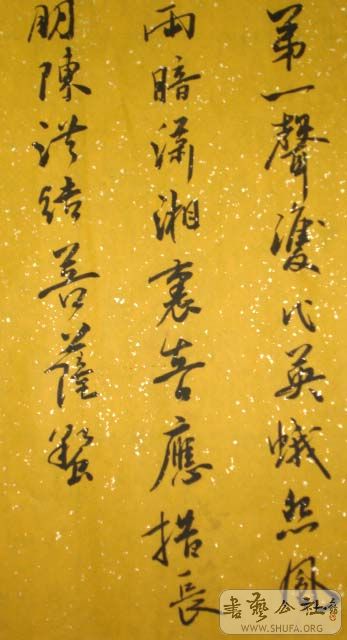 第一聲代英蛾怨風
雨暗瀟湘裏應長
朋陳洪菩薩蠻
書藝公社
WWW.SHUFA.ORG